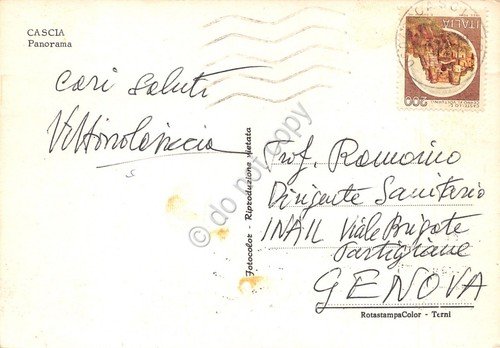 CASCIA
Panorama
Cari saluti
ITALIA
200
Fotocolor - Riproduzione vietata
Prof. Romano
Dirigente Sanitario
INAIL Viale Brigate
Partigiane
GENOVA
RotastampaColor - Terni
do not copy